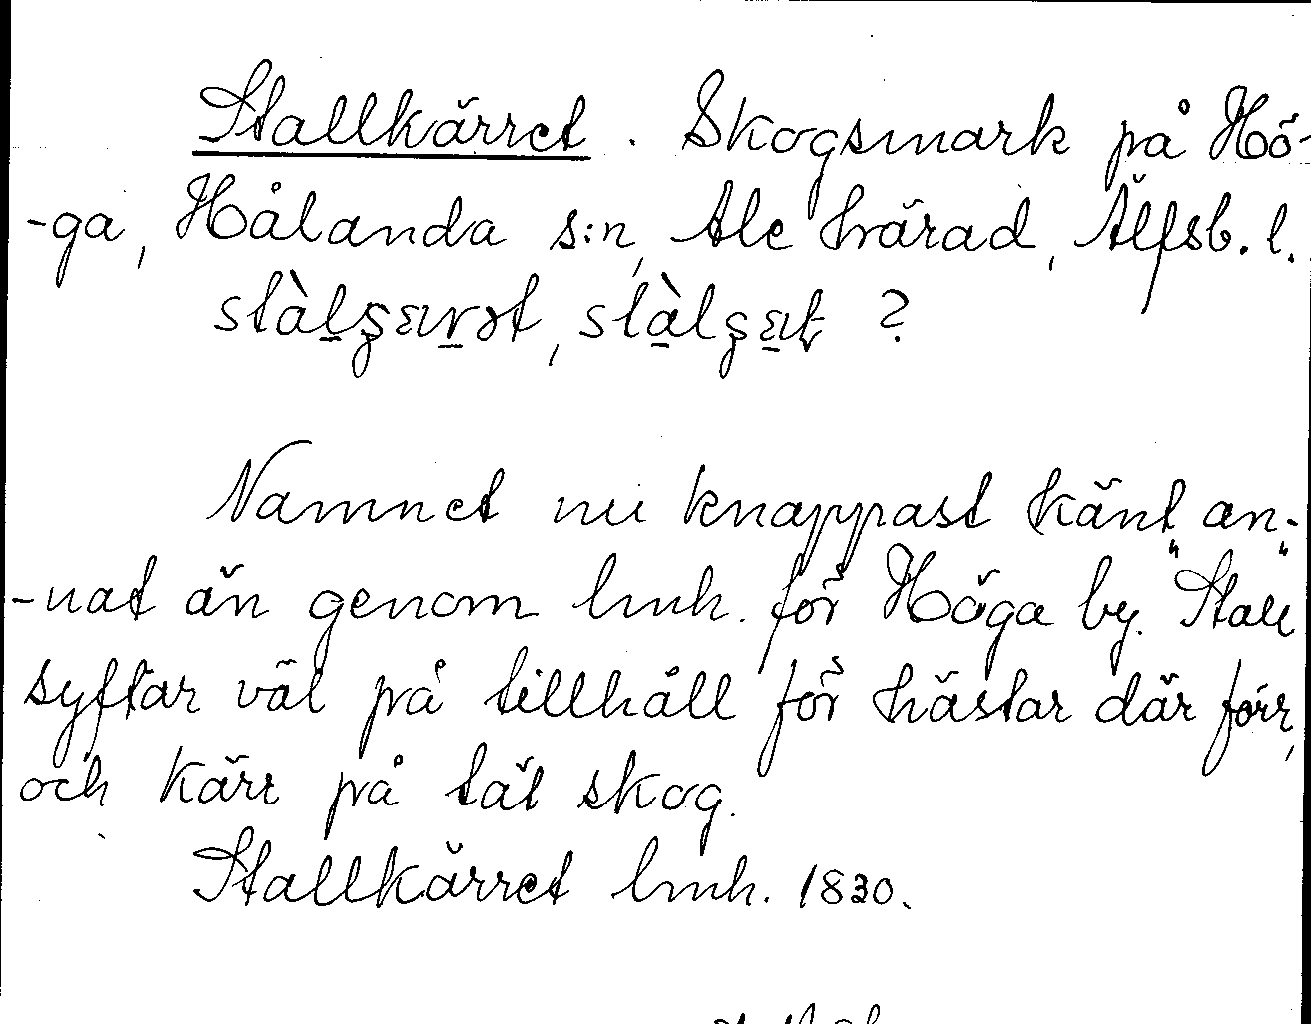 Stallkärret. Skogsmark på Hö-
-ga, Hålanda s:n, Ale härad, Älfsb. l.
Namnet nu knappast känt an-
-nat än genom lmh. för Höga by. "Stall"
syftar väl på tillhåll för hästar där förr,
och kärr på tät skog.
Stallkärret lmh. 1830.